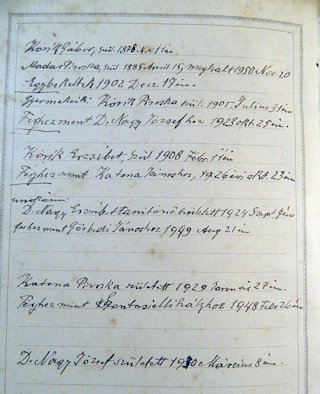 Kórik Gábor, szül. 1878. Nov. 1 én.
Madar Piroska, szül. 1885. April. 15, meghalt 1950 Nov. 20
Egybekeltek 1902 Decz. 17 én.
Gyermekeik: Kórik Piroska szül. 1905. Julius 3 án
Férjhez ment D. Nagy Józsefhez 1923 okt 25 én.
Kórik Erzsébet, szül 1908 Febr. 1 én
Férjhez ment Katona Jánoshoz, 1926 évi okt. 23 án
unokáim:
D. Nagy Erzsébet tanitónő született 1924 Szept
férhez ment Görbedi Jánoshoz 1949 Aug 21 én
Katona Piroska született 1929 Januar 27 én.
Férjhez ment Mihályhoz 1948 Febr 26 án
D. Nagy József született 1930 Március 8 án.